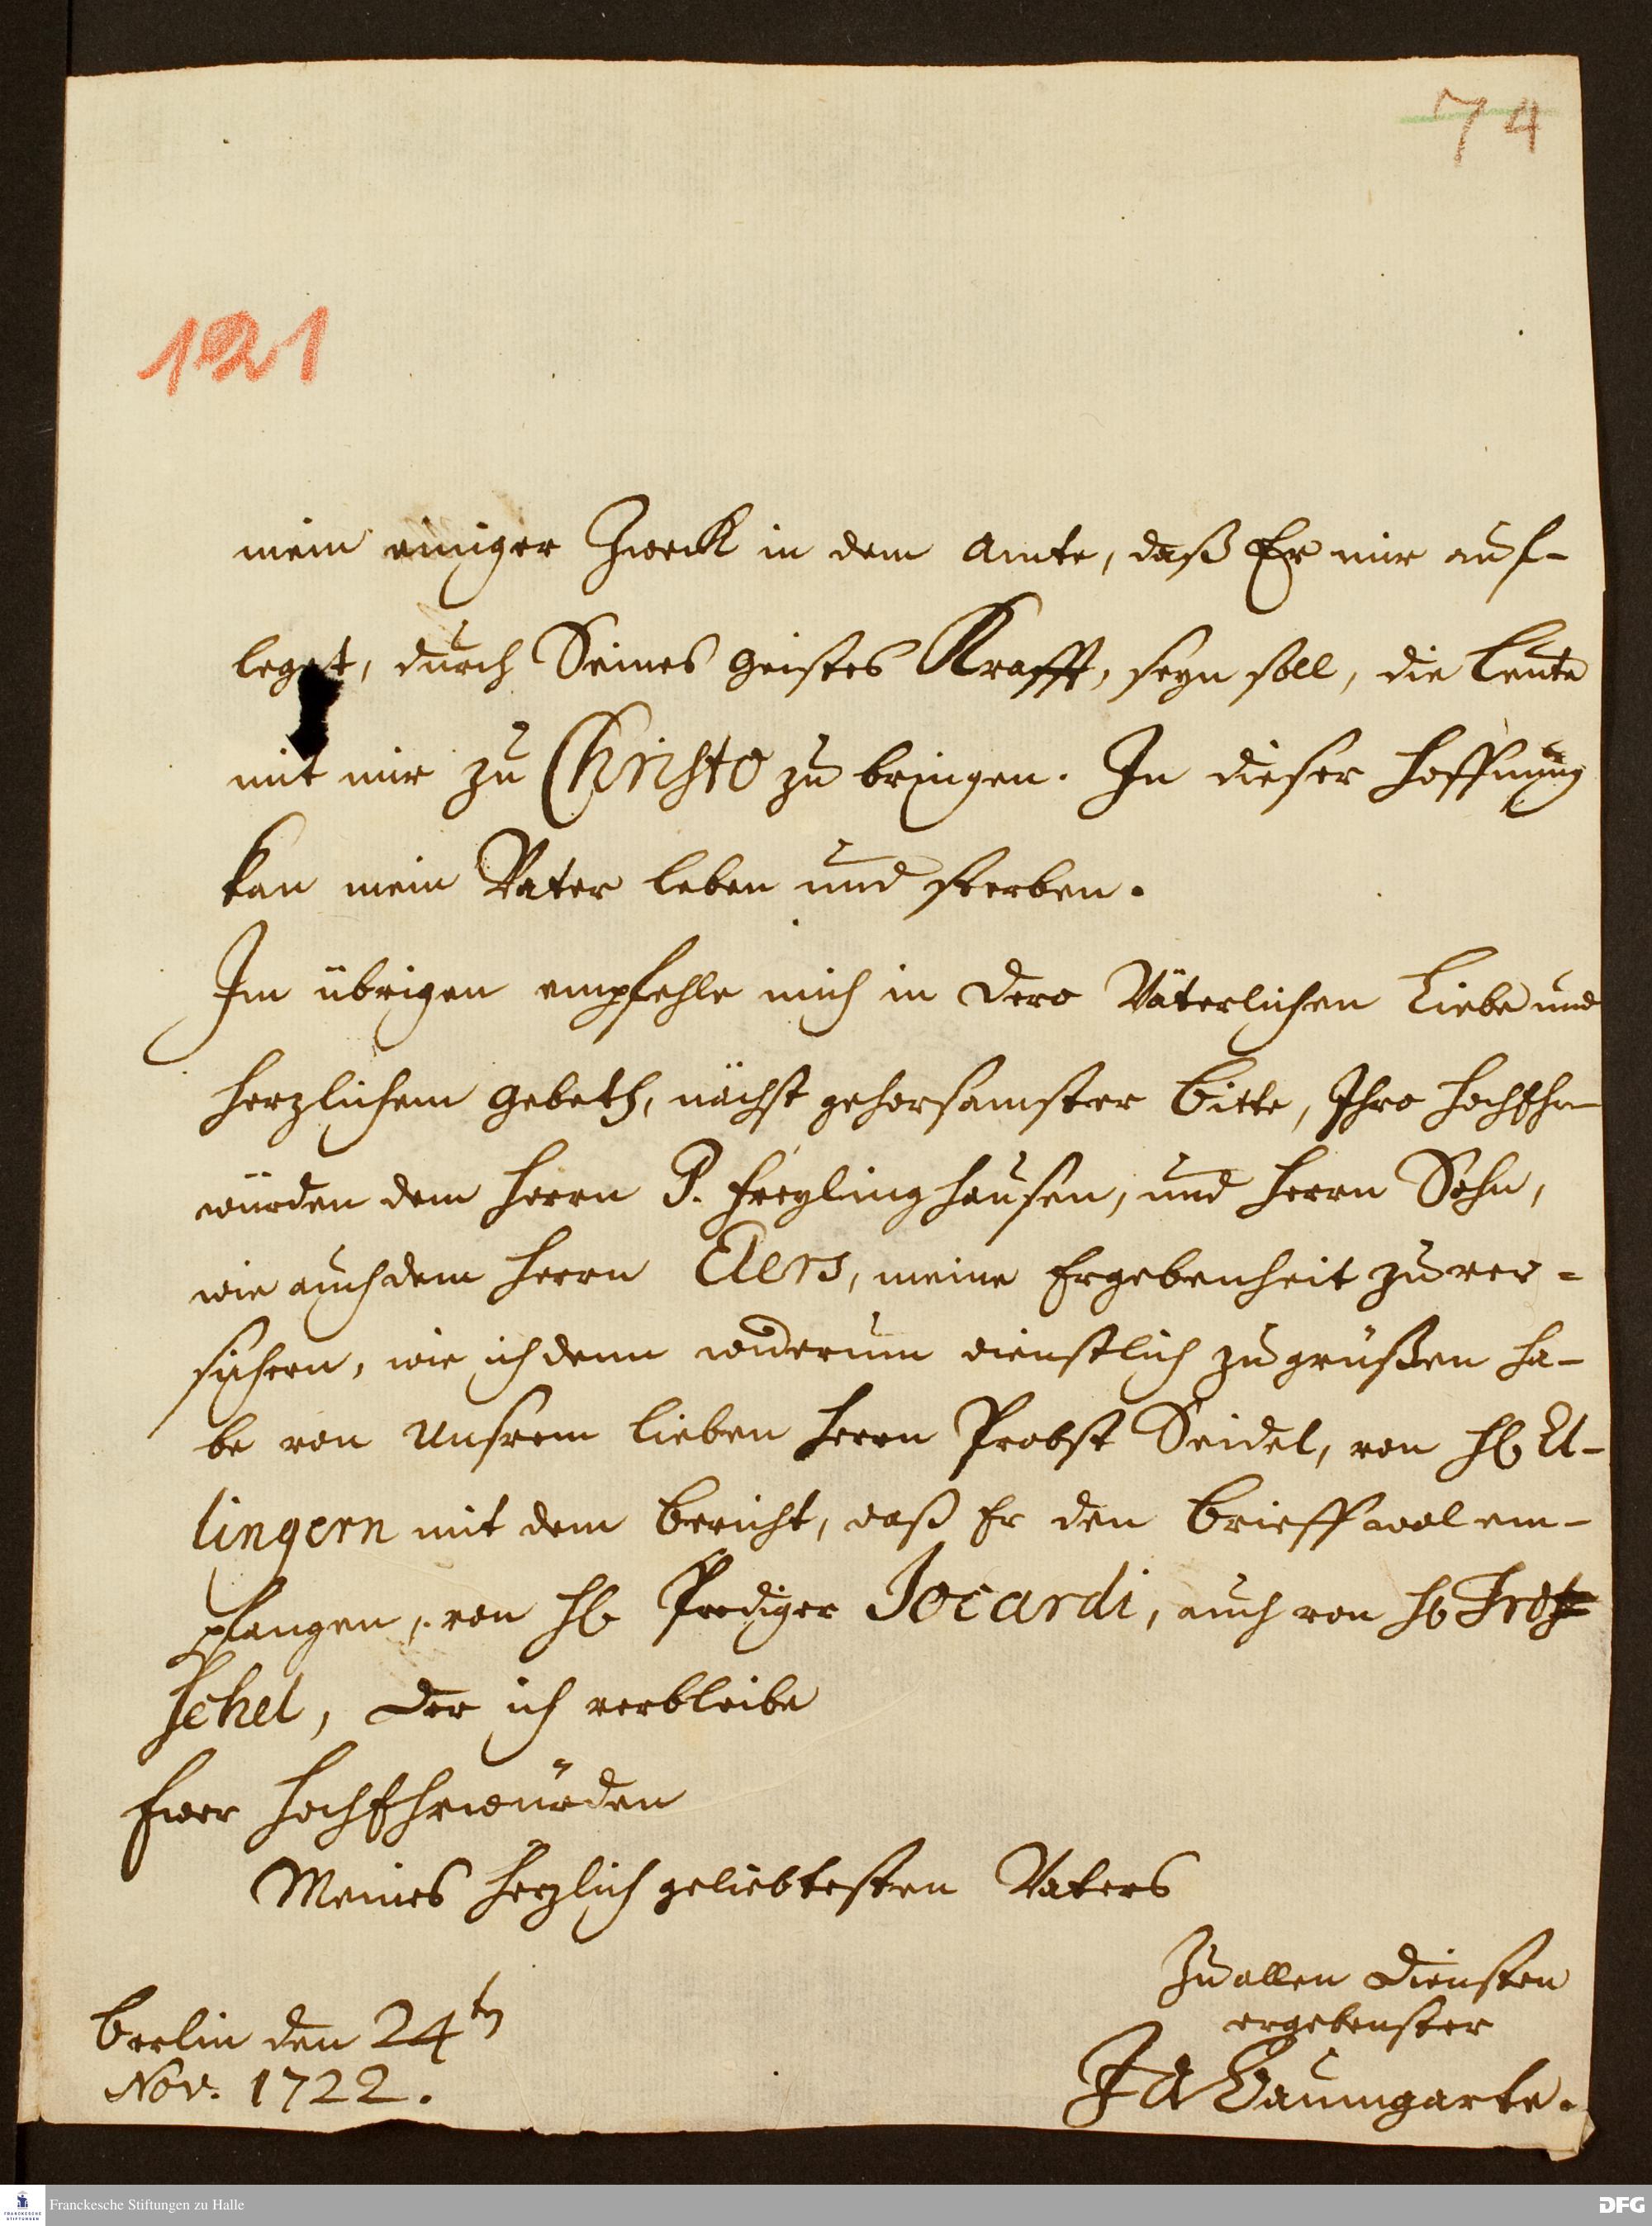 74
121
mein einiger Zweck in dem Amte, daß Er mir auf-
leget, durch Seines Geistes Krafft, seyn soll, die Leute
mit mir zu Christo zu bringen. In dieser Hoffnung
kan mein Vater leben und sterben.
Im übrigen empfehle mich in Dero Väterlichen Liebe und
herzlichem Gebeth, nächst gehorsamster Bitte, Ihro HochEhr-
würden dem Herrn P. Freylinghausen, und Herrn Sohn,
wie auch dem Herrn Elers, meine Ergebenheit zu ver-
sichern, wie ich denn widerum dienstlich zu grüßen ha-
be von Unsrem lieben Herrn Probst Seidel, von H. El-
lingern mit dem Bericht, daß Er den Brieff wol em-
pfangen, von H. Prediger Jocardi, auch von H.
schel, Der ich verbleibe
Ewer HochEhrwürden
Meines herzlich geliebtesten Vaters
Zu allen Diensten
ergebenster
Berlin den 24ten
JA Baumgarte.
Nov. 1722.
Franckesche Stiftungen zu Halle
DFG